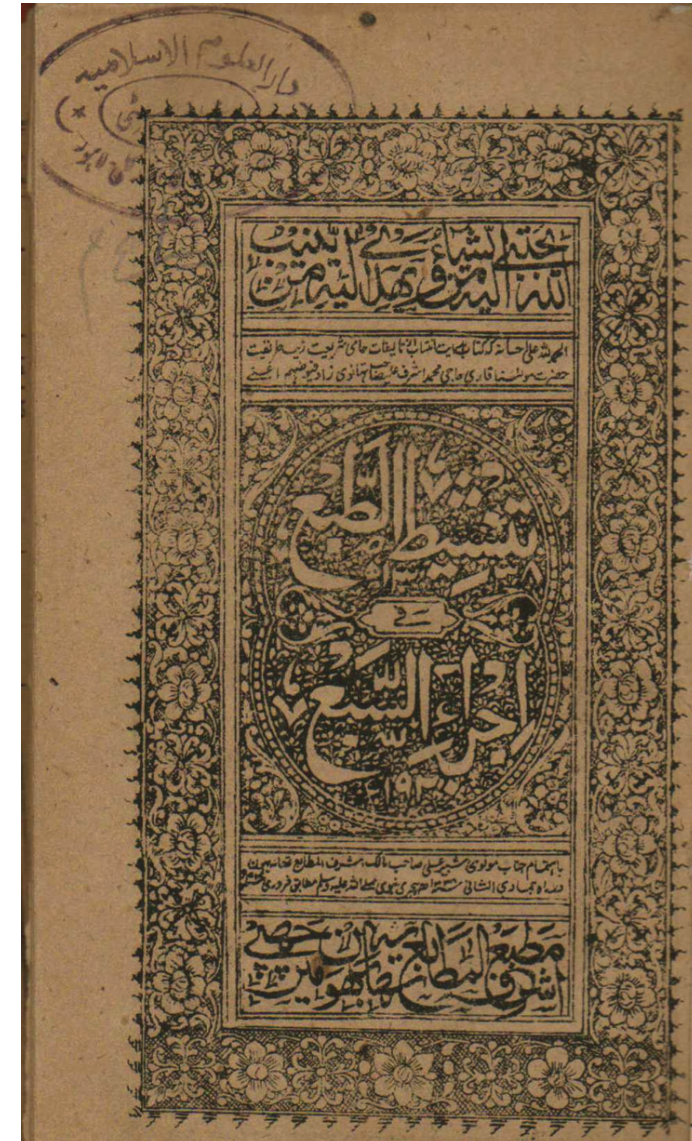 دارالعلوم الاسلامیہ
اللہ یجتبی الیہ من یشاء و یہدی الیہ من ینیب
الحمد للہ علی احسانہ کہ کتاب انتخاب تالیفات حامی شریعت زیب طریقت
حضرت مولٰنا قاری حاجی محمد اشرف علی صاحب تھانوی زاد فیوضہم
تنشیط الطبع
فے
اجراء السبع
باہتمام جناب مولوی شبیر علی صاحب مالک اشرف المطابع تھانہ بھون
در ماہ جمادی الثانی ہجری نبوی صلے اللہ علیہ وسلم مطابق فروری
مطبع اشرف المطابع تھانہ بھون میں چھپی